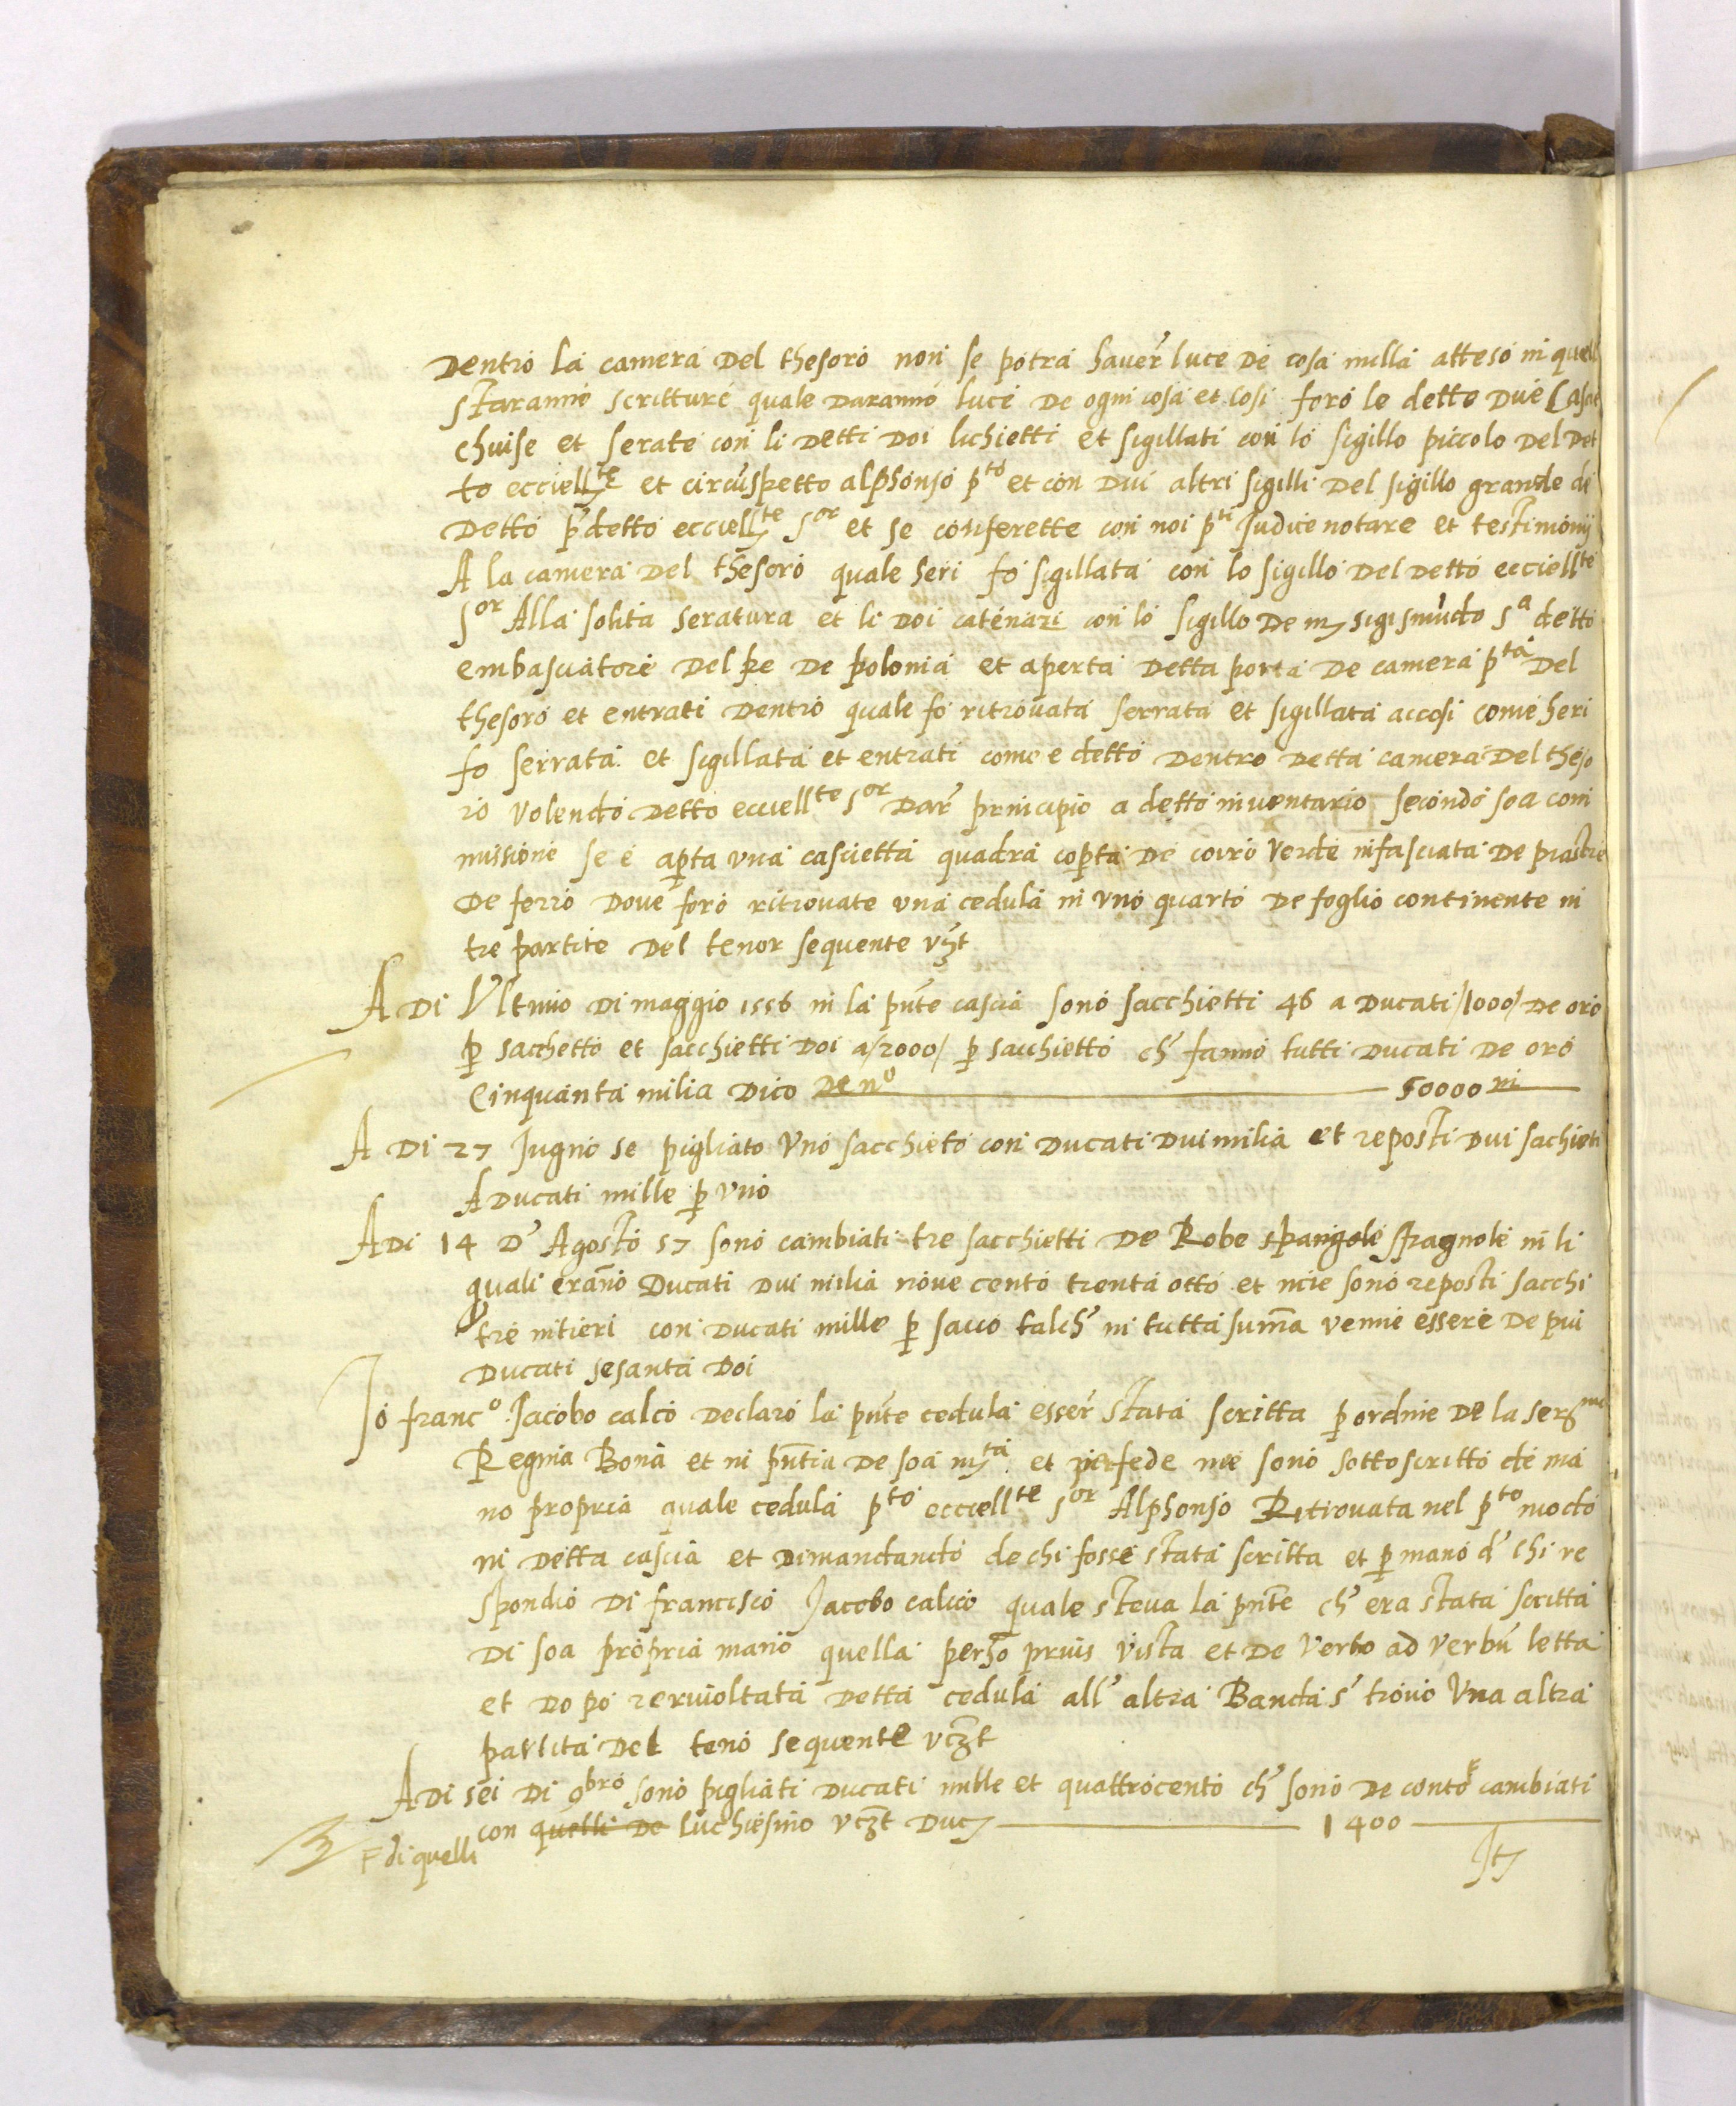 Dentro la camera del thesoro non se potra haver luce de cosa nulla atteso in quell
staranno scritture quale daranno luce de ogni cosa et cosi foro le dette due Casse
chuise et serate con li detti doi lichietti et sigillati con lo sigillo piccolo del det
to eccellte et circuspetto alphonso pto et con dui altri sigilli del sigillo grande di
detto pdetto eccellte sor et se conferette con noi pti Judice notare et testimonij
A la camera del thesoro quale heri fo sigillata con lo sigillo del detto eccellte
Sor Alla solita seratura et li doi catenazi con lo sigillo de m sigismudo sa detto
embasciatore del Re de polonia et aperta detta porta de camera pta del
thesoro et entrati dentro quale fo ritrovata serrata et sigillata accosi come heri
fo serrata et sigillata et entrati come e detto dentro detta camera del theso
ro volendo detto eccellte sor dar principio a detto inventario secondo soa com
missione se e apta una cascietta quadra copta de coiro verde infasciata de piastre
de ferro dove foro ritrovate una cedula in uno quarto de foglio continente in
tre partite del tenor sequente vzt
A di Ultimo di maggio 1556 in la pnte cascia sono sacchietti 46 a ducati /1000/ de oro
p sacchetto et sacchietti doi a /2000/ p sacchietto ch fanno tutti ducati de oro
Cinquanta milia dico de no 50000 m
A di 27 Jugno se pigliato uno sacchieto con ducati dui milia et reposti dui sachieti
A ducati mille p uno
A di 14 d Agosto 57 sono cambiati tre sacchietti de Robe spangole spagnole in li
quali erano Ducati dui milia nove cento trenta otto et incie sono reposti sacchi
tre intieri con ducati mille p sacco talch in tutta suma venne essere de piu
ducati sesanta doi
Io franco Jacobo calco declaro la pnte cedula esser stata scritta p ordine de la Serma
Regina Bona et in pntia de soa mta et per fede me sono sottoscritto de ma
no propria quale cedula pto eccellte sor Alphonso Ritrovata nel pto modo
in detta cascia et dimandando de chi fosse stata scritta et p mano d chi re
spondio di francisco Jacobo calco quale steva la pnte ch era stata scritta
di soa propria mano quella perho prius vista et de verbo ad verbu letta
et do po rervioltata detta cedula all altra Banda s trovo Una altra
partita del teno sequente vczt
A di sei di 9bro sono pigliati ducati mille et quattrocento ch sono de conto cambiati
con quelli de luchiesino vczt duc 1400
F di quelli
It